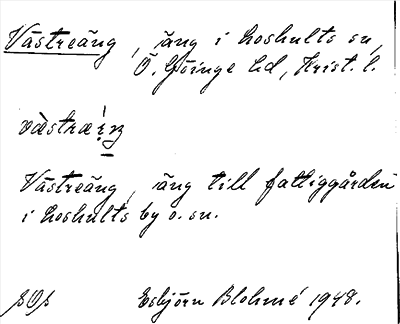 Västreäng, äng i Loshults sn,
Ö. Göinge hd, Krist. l.
Västreäng, äng till fattiggården
i Loshults by o. sn.
Esbjörn Blohmé 1948.